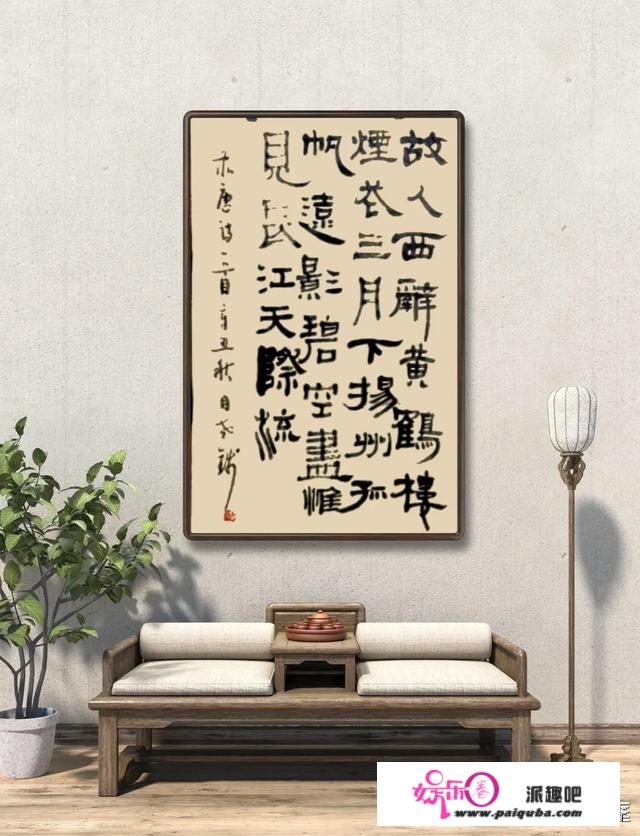 故人西辭黄鶴樓
煙花三月下揚州孤
帆遠影碧空盡惟
見長江天際流
录唐诗一首辛丑秋月
娱乐圈 派趣吧
www.paiquba.com